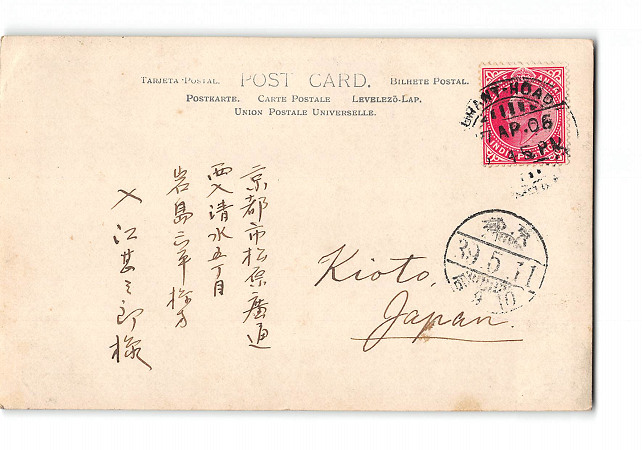 TARJETA POSTAL. POST CARD. BILHETE POSTAL.
POSTKARTE. CARTE POSTALE LEVELEZŐ-LAP.
UNION POSTALE UNIVERSELLE.
INDIA POSTAGE
AP.06
39.5.11
京都市松原廣道
西入清水五丁目
岩島三平様方
入江甚三郎様
Kioto,
Japan.